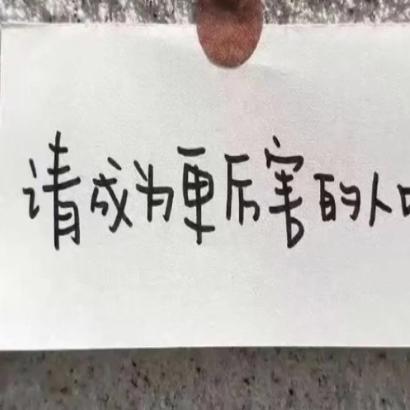 请成为更厉害的人